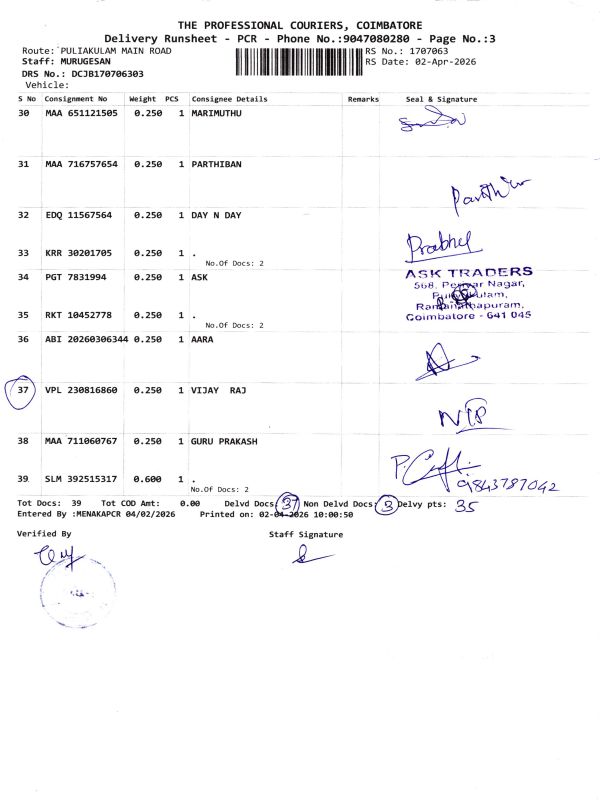 THE PROFESSIONAL COURIERS, COIMBATORE
Delivery Runsheet - PCR - Phone No.:9047080280 - Page No.:3
Route: PULIAKULAM MAIN ROAD RS No.: 1707063
Staff: MURUGESAN RS Date: 02-Apr-2026
DRS No.: DCJB170706303
Vehicle:
S No Consignment No Weight PCS Consignee Details Remarks Seal & Signature
30 MAA 651121505 0.250 1 MARIMUTHU
31 MAA 716757654 0.250 1 PARTHIBAN
32 EDQ 11567564 0.250 1 DAY N DAY
Prabhu
33 KRR 30201705 0.250 1 .
No.Of Docs: 2
34 PGT 7831994 0.250 1 ASK
ASK TRADERS
568, Periyar Nagar,
Puliyakulam,
Ramanathapuram,
Coimbatore - 641 045
35 RKT 10452778 0.250 1 .
No.Of Docs: 2
36 ABI 20260306344 0.250 1 AARA
37 VPL 230816860 0.250 1 VIJAY RAJ
38 MAA 711060767 0.250 1 GURU PRAKASH
39 SLM 392515317 0.600 1 .
9843787042
No.Of Docs: 2
Tot Docs: 39 Tot COD Amt: 0.00 Delvd Docs: 37 Non Delvd Docs: 3 Delvy pts: 35
Entered By :MENAKAPCR 04/02/2026 Printed on: 02-04-2026 10:00:50
Verified By Staff Signature